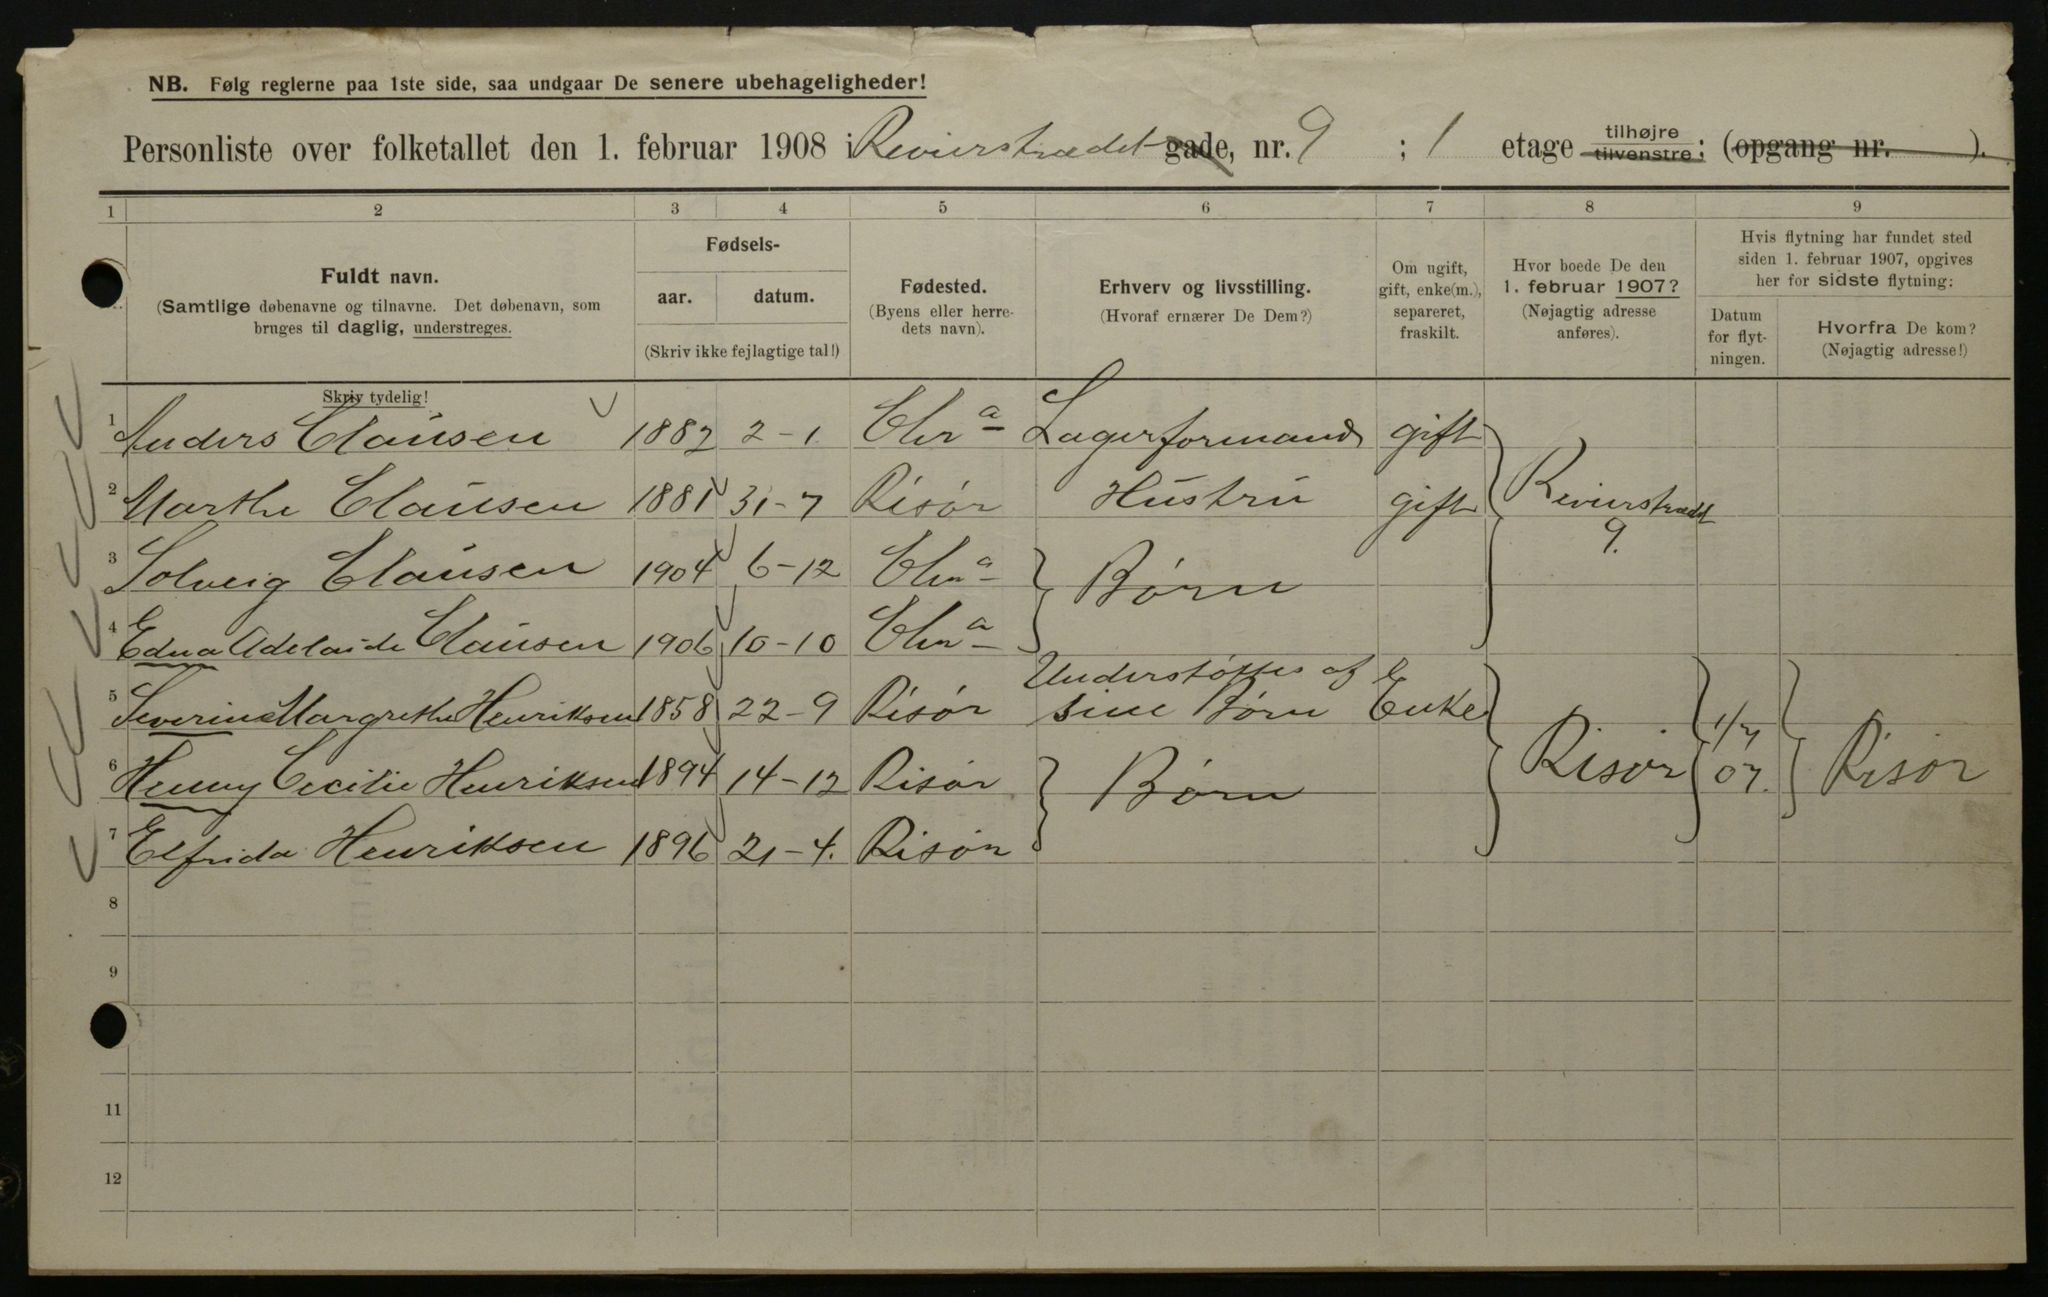 NB. Følg reglerne paa 1ste side, saa undgaar De senere ubehageligheder!
Personliste over folketallet den 1. februar 1908 i Revierstrædet gade, nr. 9 ; 1 etage tilhøjre tilvenstre; (opgang nr. ).
1 2 3 4 5 6 7 8 9
Fuldt navn.
(Samtlige døbenavne og tilnavne. Det døbenavn, som
bruges til daglig, understreges.
Fødsels-
aar. datum.
(Skriv ikke fejlagtige tal!)
Fødested.
(Byens eller herre-
dets navn).
Erhverv og livsstilling.
(Hvoraf ernærer De Dem?)
Om ugift,
gift, enke(m.),
separeret,
fraskilt.
Hvor boede De den
1. februar 1907?
(Nøjagtig adresse
anføres).
Hvis flytning har fundet sted
siden 1. februar 1907, opgives
her for sidste flytning:
Datum
for flyt-
ningen.
Hvorfra De kom?
(Nøjagtig adresse!)
Skriv tydelig!
1 Anders Clausen 1882 2-1 Chr a Lagerformand gift
2 Marthe Clausen 1881 31-7 Risør Hustru gift Revierstrædet 9.
3 Solveig Clausen 1904 6-12 Chr a Børn
4 Edna Adelaide Clausen 1906 10-10 Chr a
5 Severine Margrethe Henriksen 1858 22-9 Risør Understøttes af sine Børn Enke
6 Henny Cecilie Henriksen 1894 14-12 Risør Børn Risør 1/7 07. Risør
7 Elfrida Henriksen 1896 21-4. Risør
8
9
11
12